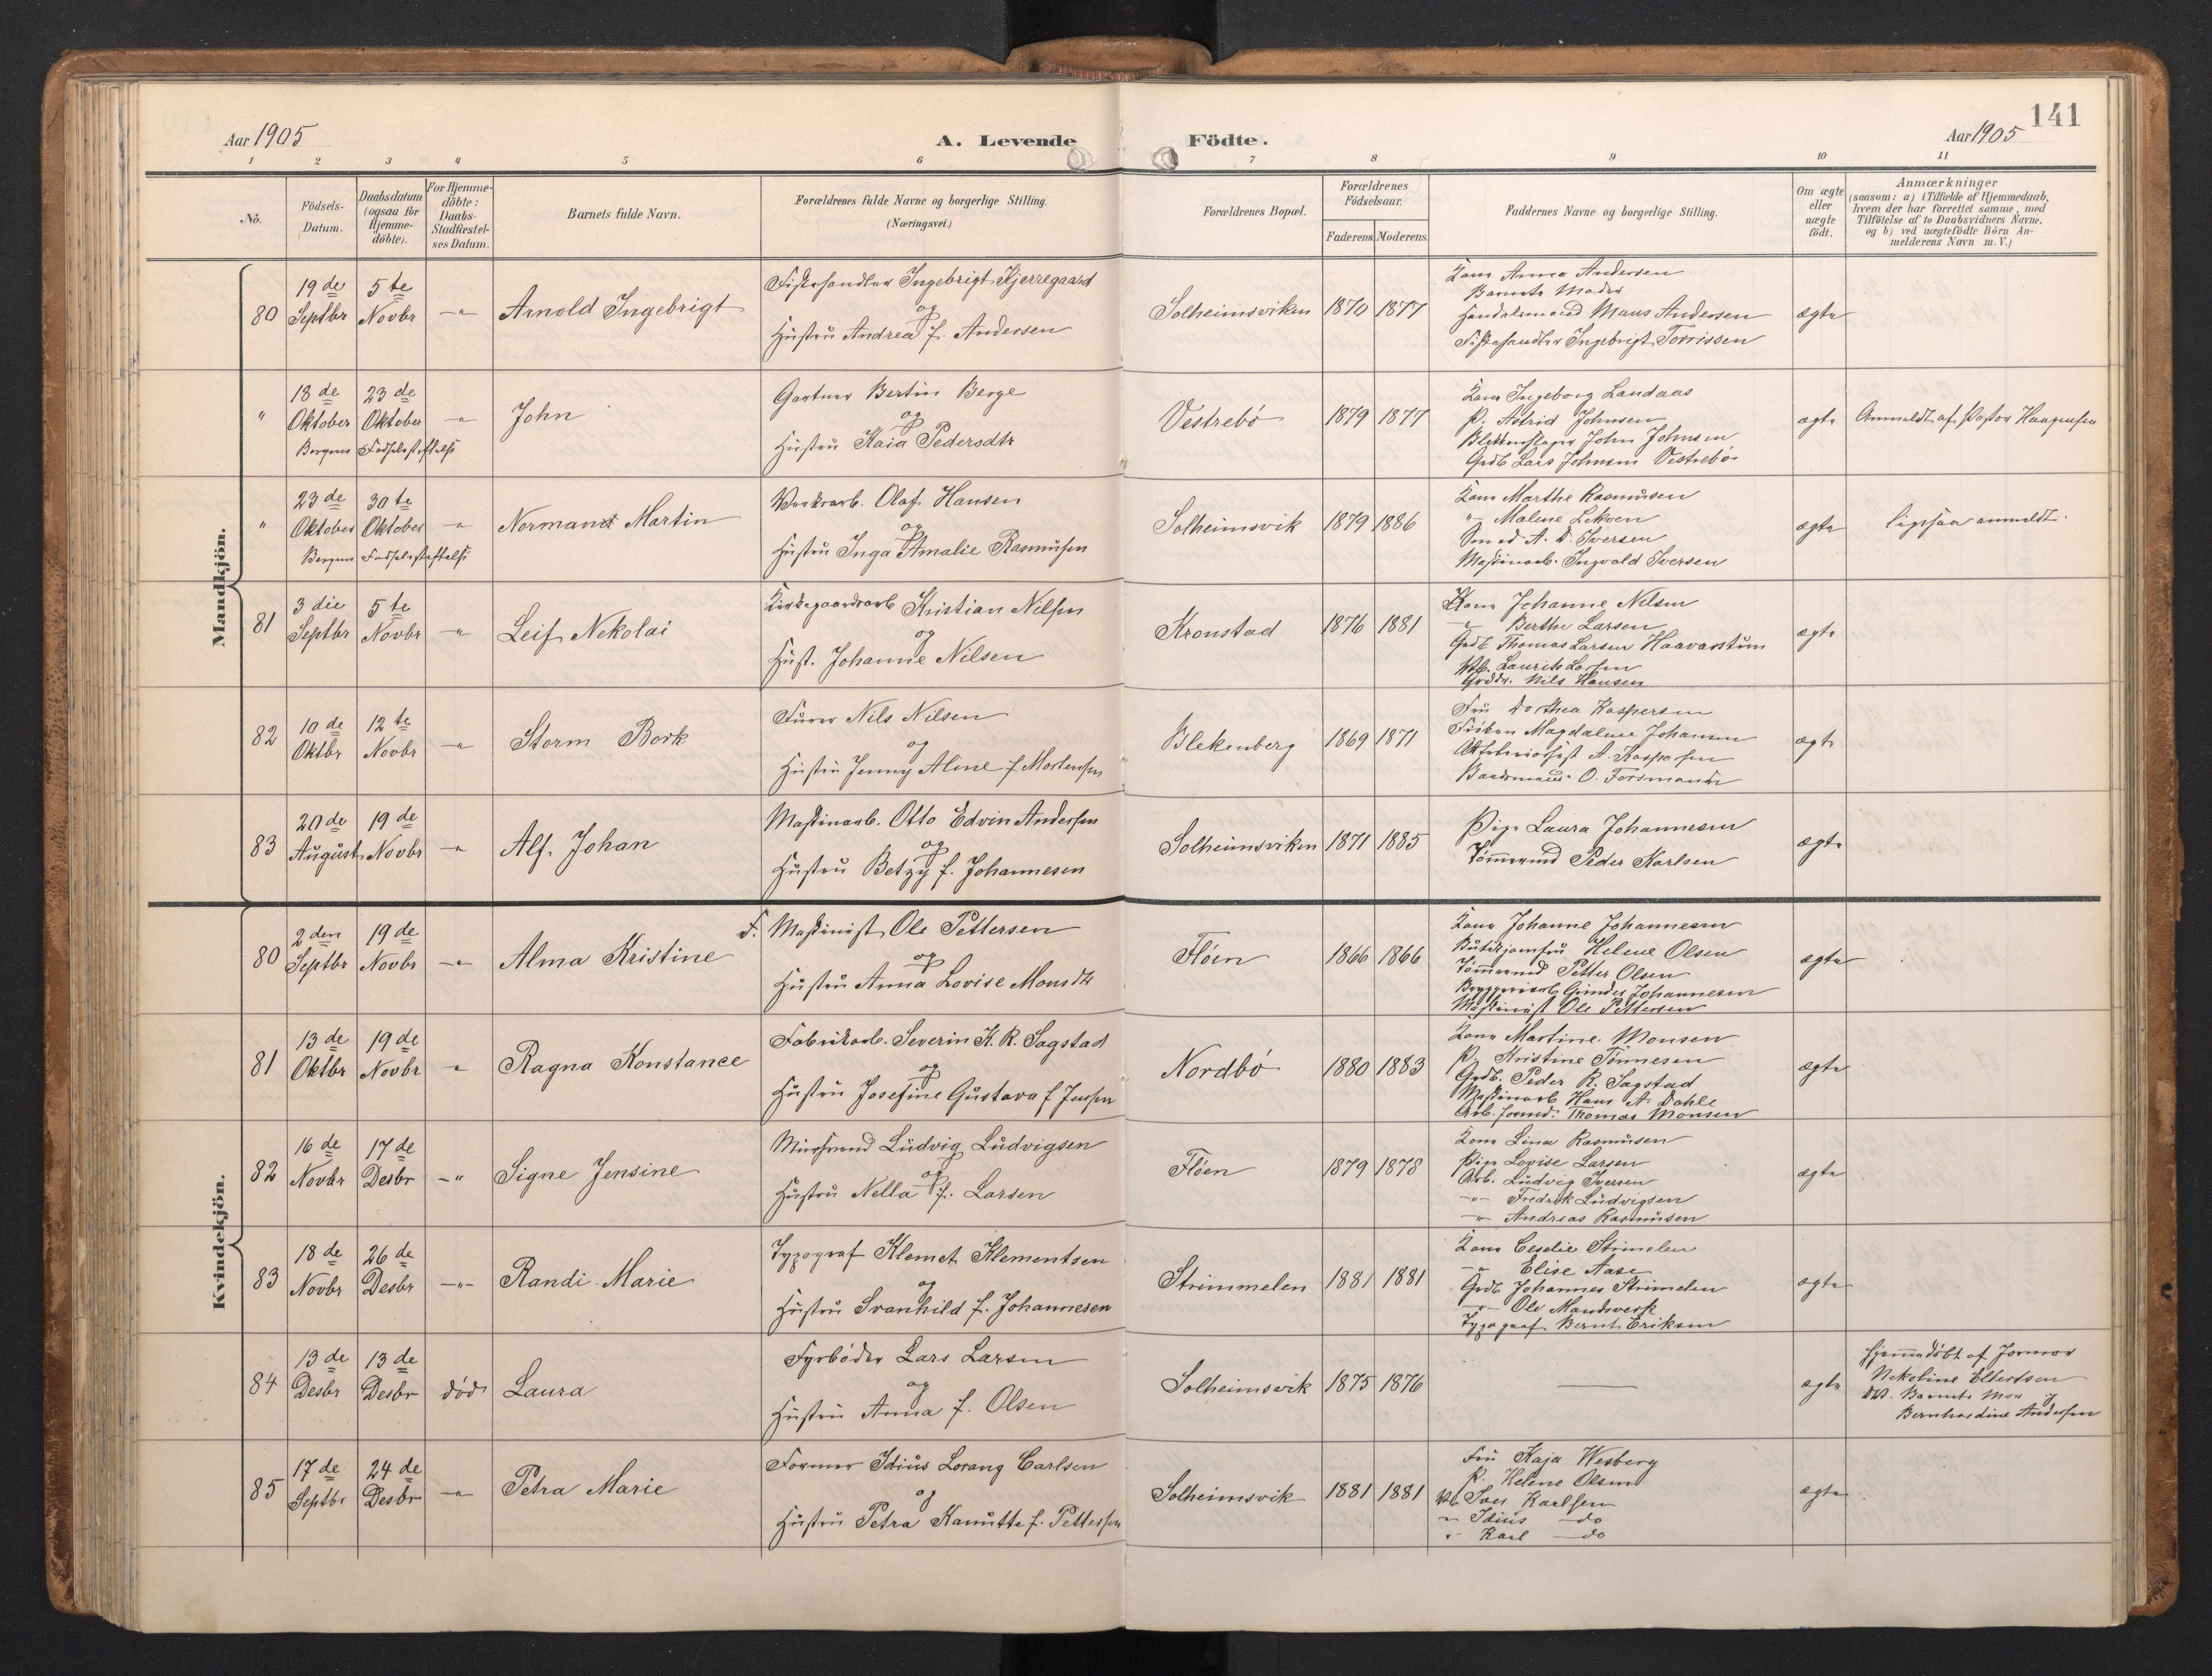 141
Aar 1905
A. Levende Födte.
Aar 1905
1 2 3 4 5 6 7 8 9 10 11
Nö.
Födsels-Datum.
Daabsdatum (ogsaa for Hjemme-döbte).
For Hjemme-döbte: Daabs-Stadfæstel-ses Datum.
Barnets fulde Navn.
Forældrenes fulde Navne og borgerlige Stilling.
(Næringsvei.)
Forældrenes Bopæl.
Forældrenes Födselsaar.
Faderens. Moderens.
Faddernes Navne og borgerlige Stilling.
Om ægte eller uægte födt.
Anmærkninger
(saasom: a) i Tilfælde af Hjemmedaab,
hvem der har forrettet samme, med
Tilföielse af to Daabsvidners Navne.
og b) ved uægtefödte Börn An-
melderens Navn m. V.)
Mandkjön.
80
19de Septbr
5te Novbr
-"-
Arnold Ingebrigt
Fiskehandler Ingebrigt Kjerregaard
og
Hustru Andrea f. Andersen
Solheimsviken
1870 1877
Kone Anna Andersen
Barnets Moder
Handelsmand Mans Andersen
Fiskehandler Ingebrigt Torrissen
ægte
"
18de Oktober
23de Oktober
-"-
Bergens Fødselsstiftelse
John
Gartner Bertin Berge
og
Hustru Kaia Pedersdtr
Vestrebö
1879 1877
Kone Ingeborg Landaas
P. Astrid Johnsen
Blikkenslager John Johnsen
Grdb Lars Johnsen Vestrebö
ægte
Anmeldt af Pastor Haagensen
"
23de Oktober
30te Oktober
-"-
Bergens Fødselsstiftelse
Normand Martin
Værksarb. Olaf Hansen
og
Hustru Inga Amalie Rasmusen
Solheimsvik
1879 1886
Kone Marthe Rasmusen
-"- Malene Lekven
Smed A. D. Iversen
Maskinarb. Ingvald Iversen
ægte
ligesaa anmeldt.
81
3die Septbr
5te Novbr
-"-
Leif Nekolai
Kirkegaardsarb Kristian Nilsen
og
Hust. Johanne Nilsen
Kronstad
1876 1881
Kone Johanne Nilsen
-"- Berthe Larsen
Grdb Thomas Larsen Haavarstun
Laurits Larsen
Nils Hansen
ægte
82
10de Oktbr
12te Novbr
-"-
Storm Bork
Furer Nils Nilsen
og
Hustru Jenny Aline f Mortensen
Blekenberg
1869 1871
Fru Dorthea Kaspersen
Fröken Magdalene Johansen
A. Kaspersen
Baadsmand O. Forsmand
ægte
83
20de August
19de Novbr
-"-
Alf. Johan
Maskinarb. Otto Edvin Andersen
og
Hustru Betzy f. Johannesen
Solheimsviken
1871 1885
Pige Laura Johannesen
Tömmermd Peder Karlsen
ægte
Kvindekjön.
80
2den Septbr
19de Novbr
-"-
Alma Kristine
F. Maskinist Ole Pettersen
og
Hustru Anna Lovise Monsdtr
Flöen
1866 1866
Kone Johanne Johannesen
Butikjomfru Helene Olsen
Tömmermd Petter Olsen
Bryggeriarb Johannesen
Maskinist Ole Pettersen
ægte
81
13de Oktbr
19de Novbr
-"-
Ragna Konstance
Fabrikarb. Severin K. R. Sagstad
og
Hustru Josefine Gustava f Jensen
Nordbö
1880 1883
Kone Martine Monsen
P. Kristine Tönnesen
Grdb. Peder R. Sagstad
Maskinarb Hans A. Dahle
Arb. formd. Thomas Monsen
ægte
82
16de Novbr
17de Desbr
-"-
Signe Jensine
Ludvig Ludvigsen
og
Hustru Nella f. Larsen
Flöen
1879 1878
Kone Lina Rasmusen
Pige Lovise Larsen
Arb. Ludvig Iversen
-"- Fredrik Ludvigsen
-"- Andreas Rasmusen
ægte
83
18de Novbr
26de Desbr
-"-
Randi Marie
Typograf Klemet Klementsen
og
Hustru Svanhild f. Johannesen
Strimmelen
1881 1881
Kone Ceselie Strimelen
-"- Elise Aase
Grdb Johannes Strimelen
-"- Ole Mandsverk
Typograf Bernt Eriksen
ægte
84
13de Desbr
13de Desbr
död
Laura
Fyrböder Lars Larsen
og
Hustru Anna f. Olsen
Solheimsvik
1875 1876
ægte
Hjemmedöbt af Jormor
Nekoline Ellertsen
Barnets Mor og
Bernhardine Andersen
85
17de Septbr
24de Desbr
-"-
Petra Marie
Former Idius Lorang Carlsen
og
Hustru Petra Kanutte f. Pettersen
Solheimsvik
1881 1881
Fru Kaja Wesberg
P. Helene Olsen
Karlsen
-"- Idius -do
-"- Karl -do
ægte